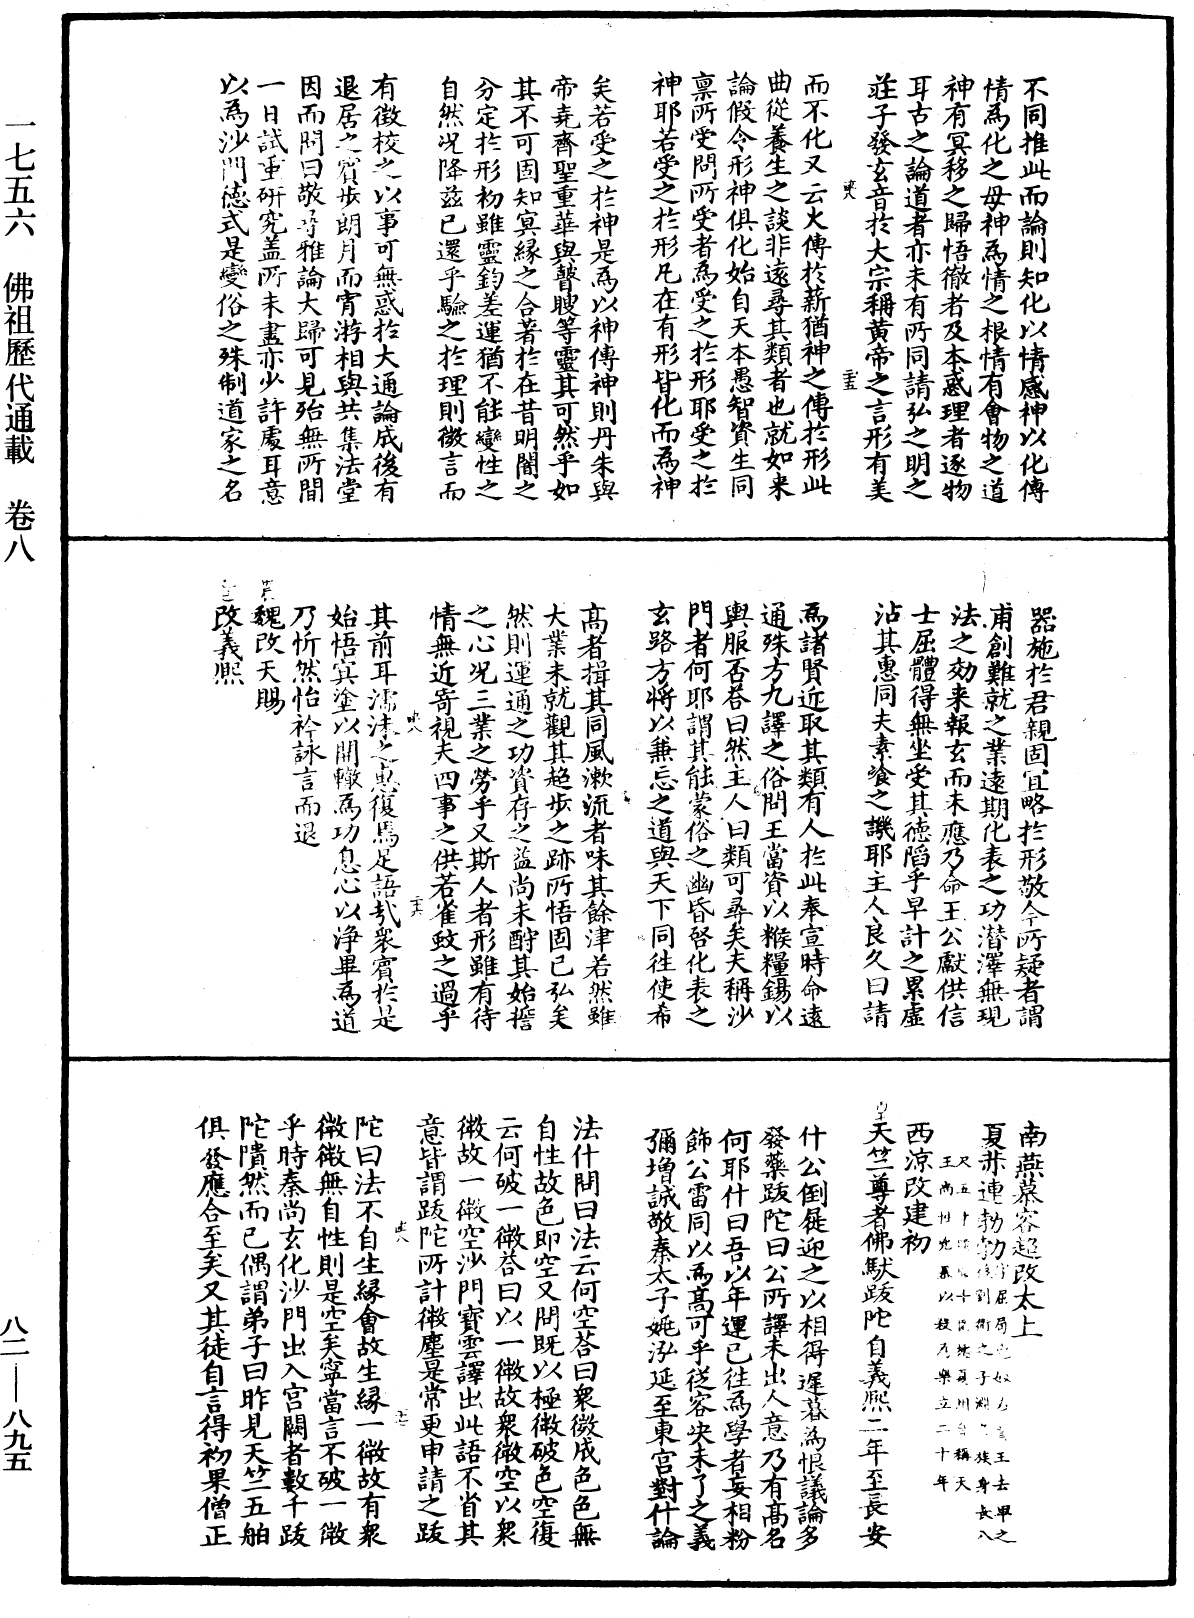 一七五六　佛祖歷代通載　卷八
八二—八九五
不同推此而論則知化以情感神以化傳
情為化之母神為情之根情有會物之道
神有冥移之歸悟徹者及本惑理者逐物
耳古之論道者亦未有所同請弘之明之
莊子發玄音於大宗稱黃帝之言形有美
而不化又云火傳於薪猶神之傳於形此
曲從養生之談非遠尋其類者也就如来
論假令形神俱化始自天本愚智資生同
禀所受問所受者為受之於形耶受之於
神耶若受之於形凡在有形皆化而為神
矣若受之於神是為以神傳神則丹朱與
帝堯齊聖重華與瞽瞍等靈其可然乎如
其不可固知冥緣之合著於在昔明闇之
分定於形初雖靈鈞差運猶不能變性之
自然况降兹已還乎驗之於理則徵言而
有徵校之以事可無惑於大通論成後有
退居之賓步朗月而宵游相與共集法堂
因而問曰敬尋雅論大歸可見殆無所間
一日試重研究盖所未盡亦少許處耳意
以為沙門德式是變俗之殊制道家之名
器施於君親固宜略於形敬今所疑者謂
甫創難就之業遠期化表之功潜澤無現
法之効来報玄而未應乃命王公獻供信
士屈體得無坐受其德陷乎早計之累虛
沾其惠同夫素飡之譏耶主人良久曰請
為諸賢近取其類有人於此奉宣時命遠
通殊方九譯之俗問王當資以糇糧錫以
輿服否荅曰然主人曰類可尋矣夫稱沙
門者何耶謂其能蒙俗之幽昏啓化表之
玄路方將以兼忘之道與天下同徃使希
高者揖其同風漱流者味其餘津若然雖
大業未就觀其超步之跡所悟固已弘矣
然則運通之功資存之益尚未酧其始誓
之心况三業之勞乎又斯人者形雖有待
情無近寄視夫四事之供若雀蚊之過乎
其前耳濡沫之惠復焉足語哉衆賓於是
始悟冥塗以開轍為功息心以淨畢為道
乃忻然怡衿詠言而退
魏改天賜
改義熙
南燕慕容超改太上
夏赫連勃勃
西涼改建初
天竺尊者佛馱跋陀自義熙二年至長安
什公倒屣迎之以相得遲暮為恨議論多
發藥跋陀曰公所譯未出人意乃有高名
何耶什曰吾以年運已徃為學者妄相粉
飾公雷同以為高可乎從容决未了之義
彌增誠敬秦太子姚泓延至東宮對什論
法什問曰法云何空荅曰衆微成色色無
自性故色即空又問既以極微破色空復
云何破一微荅曰以一微故衆微空以衆
微故一微空沙門寳雲譯出此語不省其
意皆謂跋陀所計微塵是常更申請之跋
陀曰法不自生緣會故生緣一微故有衆
微微無自性則是空矣寧當言不破一微
乎時秦尚玄化沙門出入宮闕者數千跋
陀隤然而已偶謂弟子曰昨見天竺五舶
俱發應合至矣又其徒自言得初果僧正